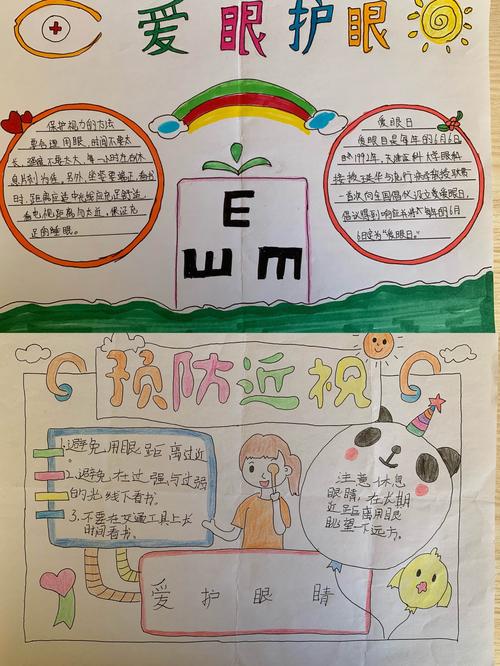 爱眼护眼
保护视力的方法
要合理用眼,时间不要太
长,强度不要太大,每一小时左右休
息片刻为佳。另外,坐姿要端正,看书
时,距离应适中,光线应充足舒适,
看电视距离勿太近,保证充
足的睡眠。
E
E
E
爱眼日
爱眼日是每年的6月6日
时1992年,天津医科大学眼科
教授
首次向全国倡议设立爱眼日,
倡议得到响应
6日定为“爱眼日”。
预防近视
1.避免用眼距离过近。
2.避免在过强与过弱
的光线下看书。
3.不要在交通工具上长
时间看书。
注意休息
眼睛,在长期
近距离用眼
眺望下远方。
爱护眼睛